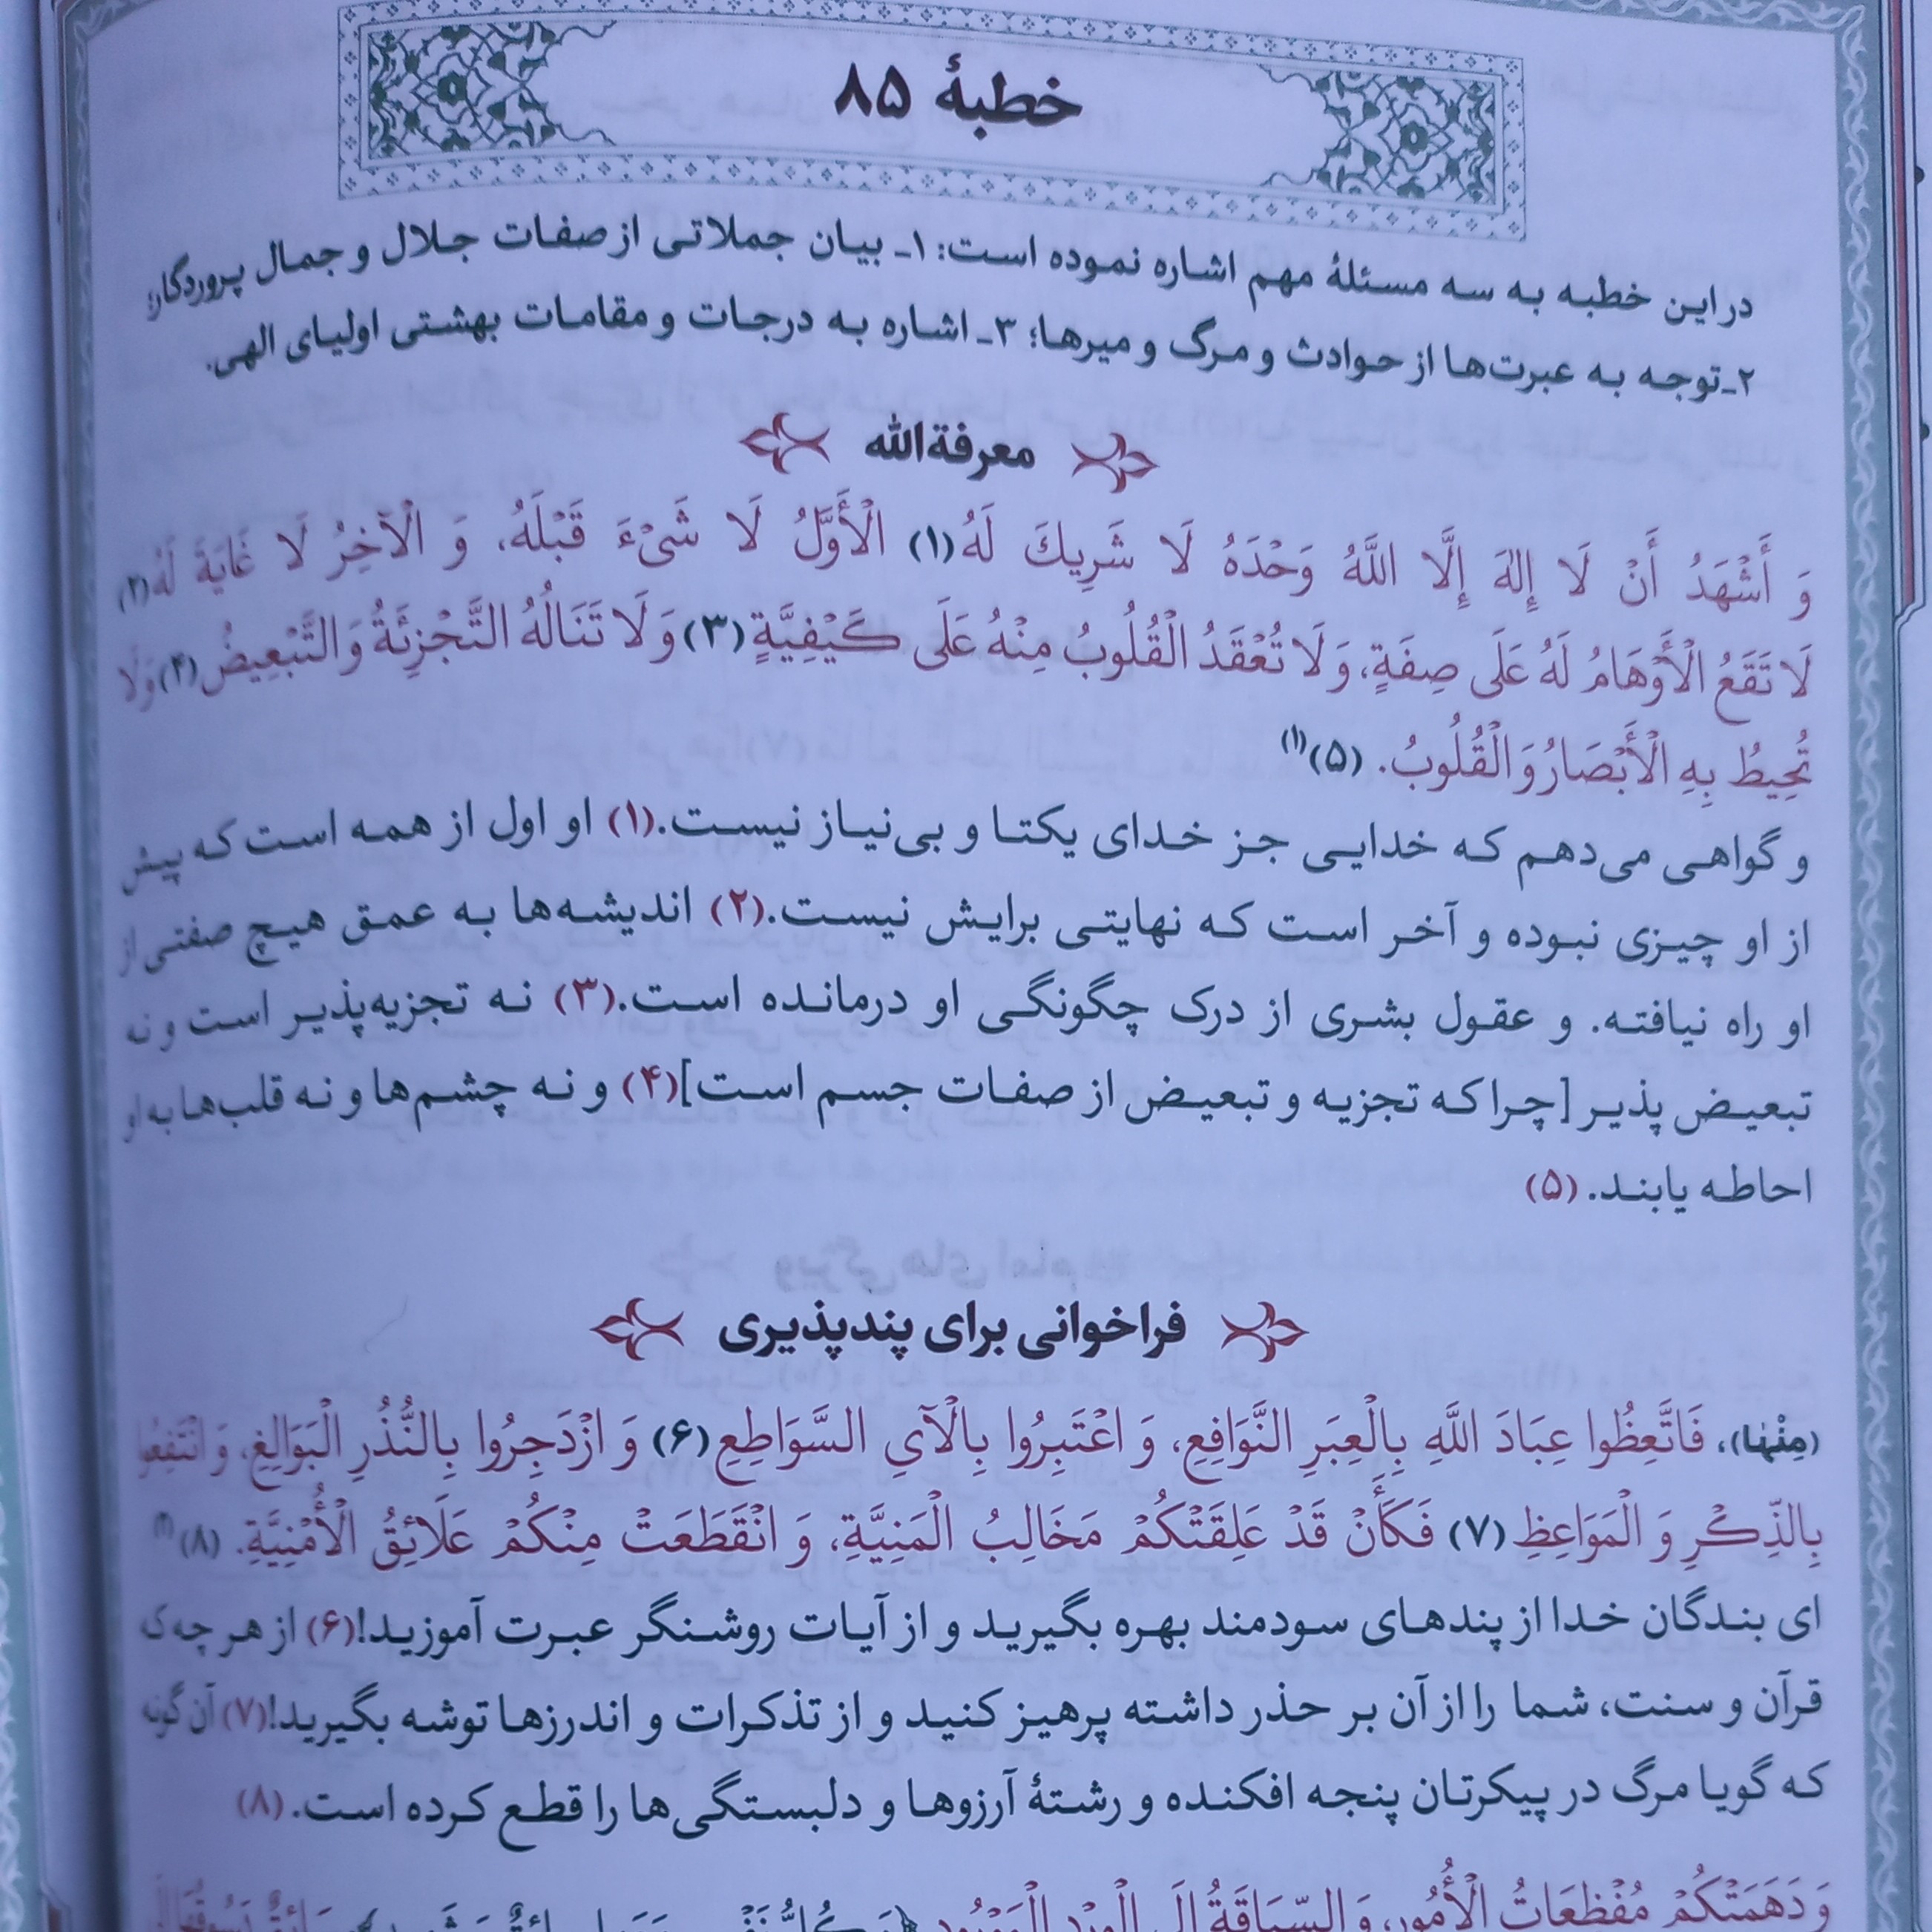 خطبهٔ ۸۵
در این خطبه به سه مسئلهٔ مهم اشاره نموده است: ۱ـ بیان جملاتی از صفات جلال و جمال پروردگار؛
۲ـ توجه به عبرت‌ها از حوادث و مرگ و میرها؛ ۳ـ اشاره به درجات و مقامات بهشتی اولیای الهی.
معرفةالله
وَ أَشْهَدُ أَنْ لَا إِلٰهَ إِلَّا اللَّهُ وَحْدَهُ لَا شَرِيكَ لَهُ (۱) الْأَوَّلُ لَا شَيْءَ قَبْلَهُ، وَ الْآخِرُ لَا غَايَةَ لَهُ (۲)
لَا تَقَعُ الْأَوْهَامُ لَهُ عَلَى صِفَةٍ، وَ لَا تُعْقَدُ الْقُلُوبُ مِنْهُ عَلَى كَيْفِيَّةٍ (۳) وَ لَا تَنَالُهُ التَّجْزِئَةُ وَ التَّبْعِيضُ (۴) وَ لَا
تُحِيطُ بِهِ الْأَبْصَارُ وَ الْقُلُوبُ. (۵)(۱)
و گواهی می‌دهم که خدایی جز خدای یکتا و بی‌نیاز نیست.(۱) او اول از همه است که پیش
از او چیزی نبوده و آخر است که نهایتی برایش نیست.(۲) اندیشه‌ها به عمق هیچ صفتی از
او راه نیافته. و عقول بشری از درک چگونگی او درمانده است.(۳) نه تجزیه‌پذیر است و نه
تبعیض پذیر [چرا که تجزیه و تبعیض از صفات جسم است](۴) و نه چشم‌ها و نه قلب‌ها به او
احاطه یابند. (۵)
فراخوانی برای پندپذیری
(مِنْهٰا)، فَاتَّعِظُوا عِبَادَ اللَّهِ بِالْعِبَرِ النَّوَافِعِ، وَ اعْتَبِرُوا بِالْآيِ السَّوَاطِعِ (۶) وَ ازْدَجِرُوا بِالنُّذُرِ الْبَوَالِغِ، وَ انْتَفِعُوا
بِالذِّكْرِ وَ الْمَوَاعِظِ (۷) فَكَأَنْ قَدْ عَلِقَتْكُمْ مَخَالِبُ الْمَنِيَّةِ، وَ انْقَطَعَتْ مِنْكُمْ عَلَائِقُ الْأُمْنِيَّةِ. (۸)
ای بندگان خدا از پندهای سودمند بهره بگیرید و از آیات روشنگر عبرت آموزید!(۶) از هر چه ک
قرآن و سنت، شما را از آن بر حذر داشته پرهیز کنید و از تذکرات و اندرزها توشه بگیرید!(۷) آن گونه
که گویا مرگ در پیکرتان پنجه افکنده و رشتهٔ آرزوها و دلبستگی‌ها را قطع کرده است. (۸)
وَ دَهَمَتْكُمْ مُفْظِعَاتُ الْأُمُورِ، وَ السِّيَاقَةُ إِلَى الْوِرْدِ الْمَوْرُودِ